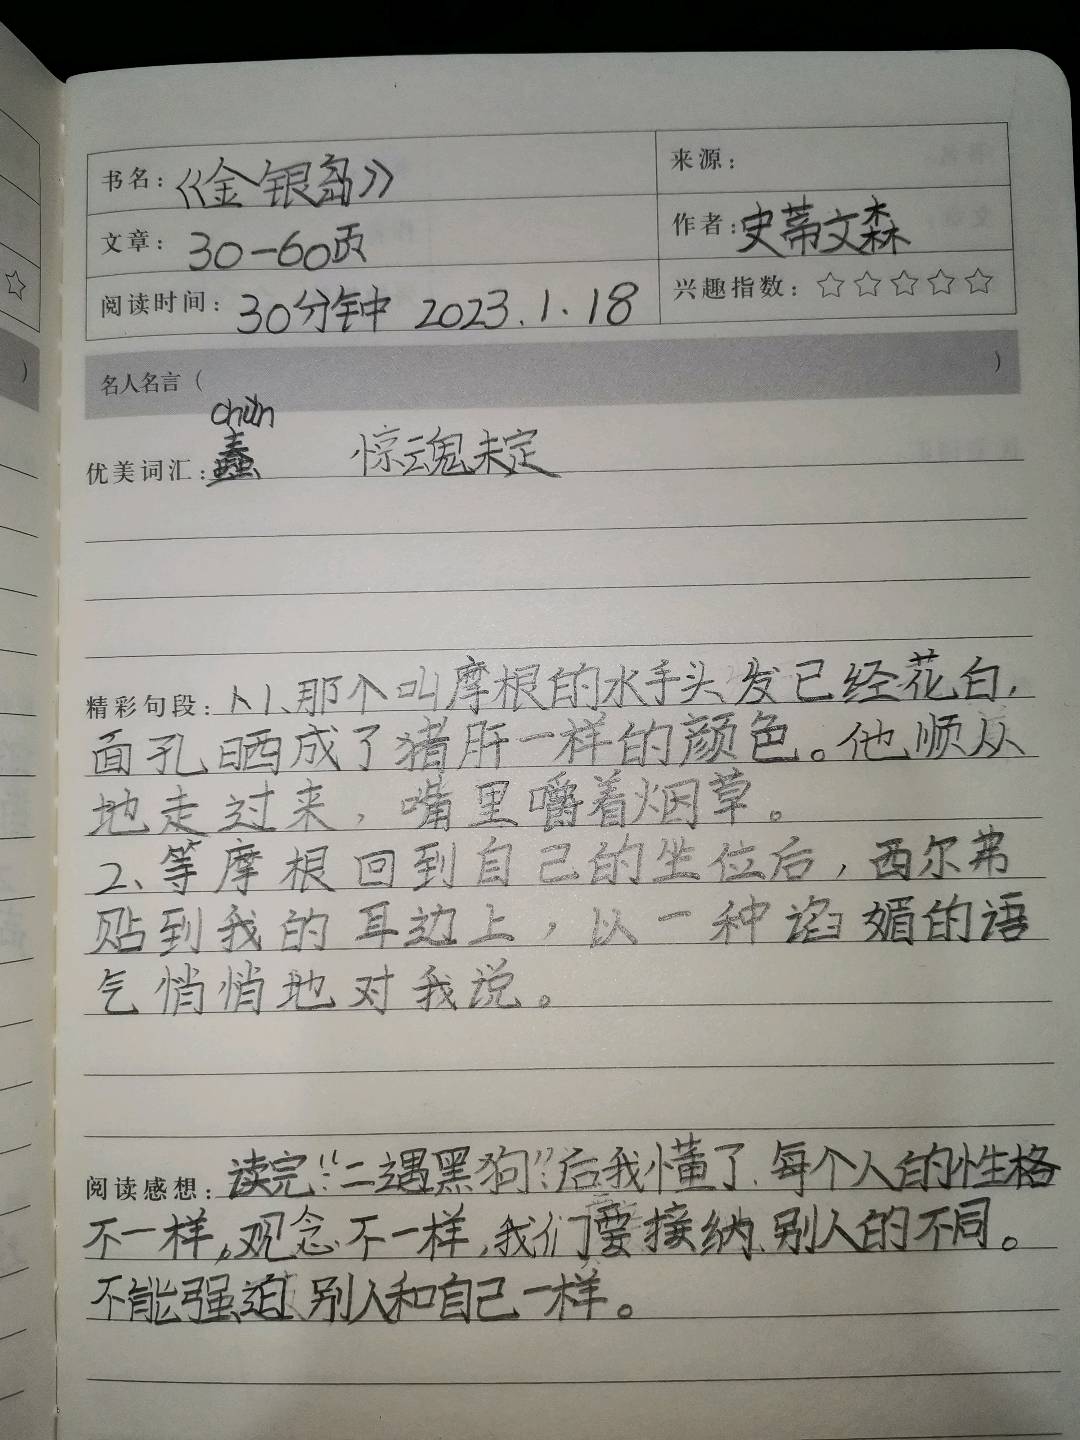 书名：《金银岛》
来源：
文章：30-60页
作者：史蒂文森
阅读时间：30分钟 2023.1.18
兴趣指数：☆☆☆☆☆
名人名言（ ）
chǔn
优美词汇：蠢 惊魂未定
精彩句段：1、那个叫摩根的水手头发已经花白，
面孔晒成了猪肝一样的颜色。他顺从
地走过来，嘴里嚼着烟草。
2、等摩根回到自己的坐位后，西尔弗
贴到我的耳边上，以一种谄媚的语
气悄悄地对我说。
阅读感想：读完“二遇黑狗”后我懂了，每个人的性格
不一样，观念不一样，我们要接纳别人的不同。
不能强迫别人和自己一样。